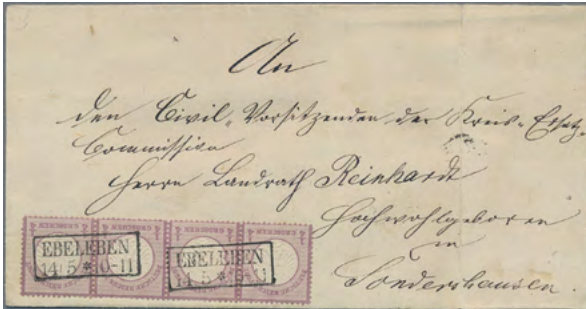 An
den Civil-Vorsitzenden der Kreis-Ersatz-
Commission
Herrn Landrath Reinhardt
Hochwohlgeboren
in
Sondershausen.
EBELEBEN
14 5 * 10-11
EBELEBEN
14 5 * 10-11